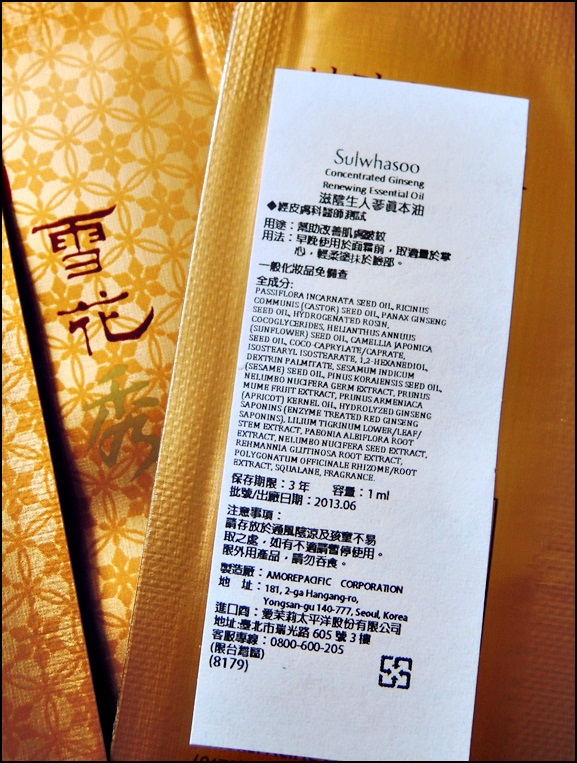 雪花秀
Sulwhasoo
Concentrated Ginseng
Renewing Essential Oil
滋陰生人蔘眞本油
◆經皮膚科醫師測試
用途：幫助改善肌膚皺紋
用法：早晚使用於面霜前，取適量於掌
心，輕柔塗抹於臉部。
一般化妝品免備查
全成分:
PASSIFLORA INCARNATA SEED OIL, RICINUS
COMMUNIS (CASTOR) SEED OIL, PANAX GINSENG
SEED OIL, HYDROGENATED ROSIN,
COCOGLYCERIDES, HELIANTHUS ANNUUS
(SUNFLOWER) SEED OIL, CAMELLIA JAPONICA
SEED OIL, COCO-CAPRYLATE/CAPRATE,
ISOSTEARYL ISOSTEARATE, 1,2-HEXANEDIOL,
DEXTRIN PALMITATE, SESAMUM INDICUM
(SESAME) SEED OIL, PINUS KORAIENSIS SEED OIL,
NELUMBO NUCIFERA GERM EXTRACT, PRUNUS
MUME FRUIT EXTRACT, PRUNUS ARMENIACA
(APRICOT) KERNEL OIL, HYDROLYZED GINSENG
SAPONINS (ENZYME TREATED RED GINSENG
SAPONINS), LILIUM TIGRINUM LOWER/LEAF/
STEM EXTRACT, PAEONIA ALBIFLORA ROOT
EXTRACT, NELUMBO NUCIFERA SEED EXTRACT,
REHMANNIA GLUTINOSA ROOT EXTRACT,
POLYGONATUM OFFICINALE RHIZOME/ROOT
EXTRACT, SQUALANE, FRAGRANCE.
保存期限：3 年　容量：1 ml
批號/出廠日期：2013.06
注意事項：
請存放於通風陰涼及孩童不易
取之處，如有不適請暫停使用。
限外用產品，請勿吞食。
製造廠：AMOREPACIFIC CORPORATION
地 址：181, 2-ga Hangang-ro,
Yongsan-gu 140-777, Seoul, Korea
進口商：愛茉莉太平洋股份有限公司
地址:臺北市瑞光路 605 號 3 樓
客服專線：0800-600-205
(限台灣區)
(8179)